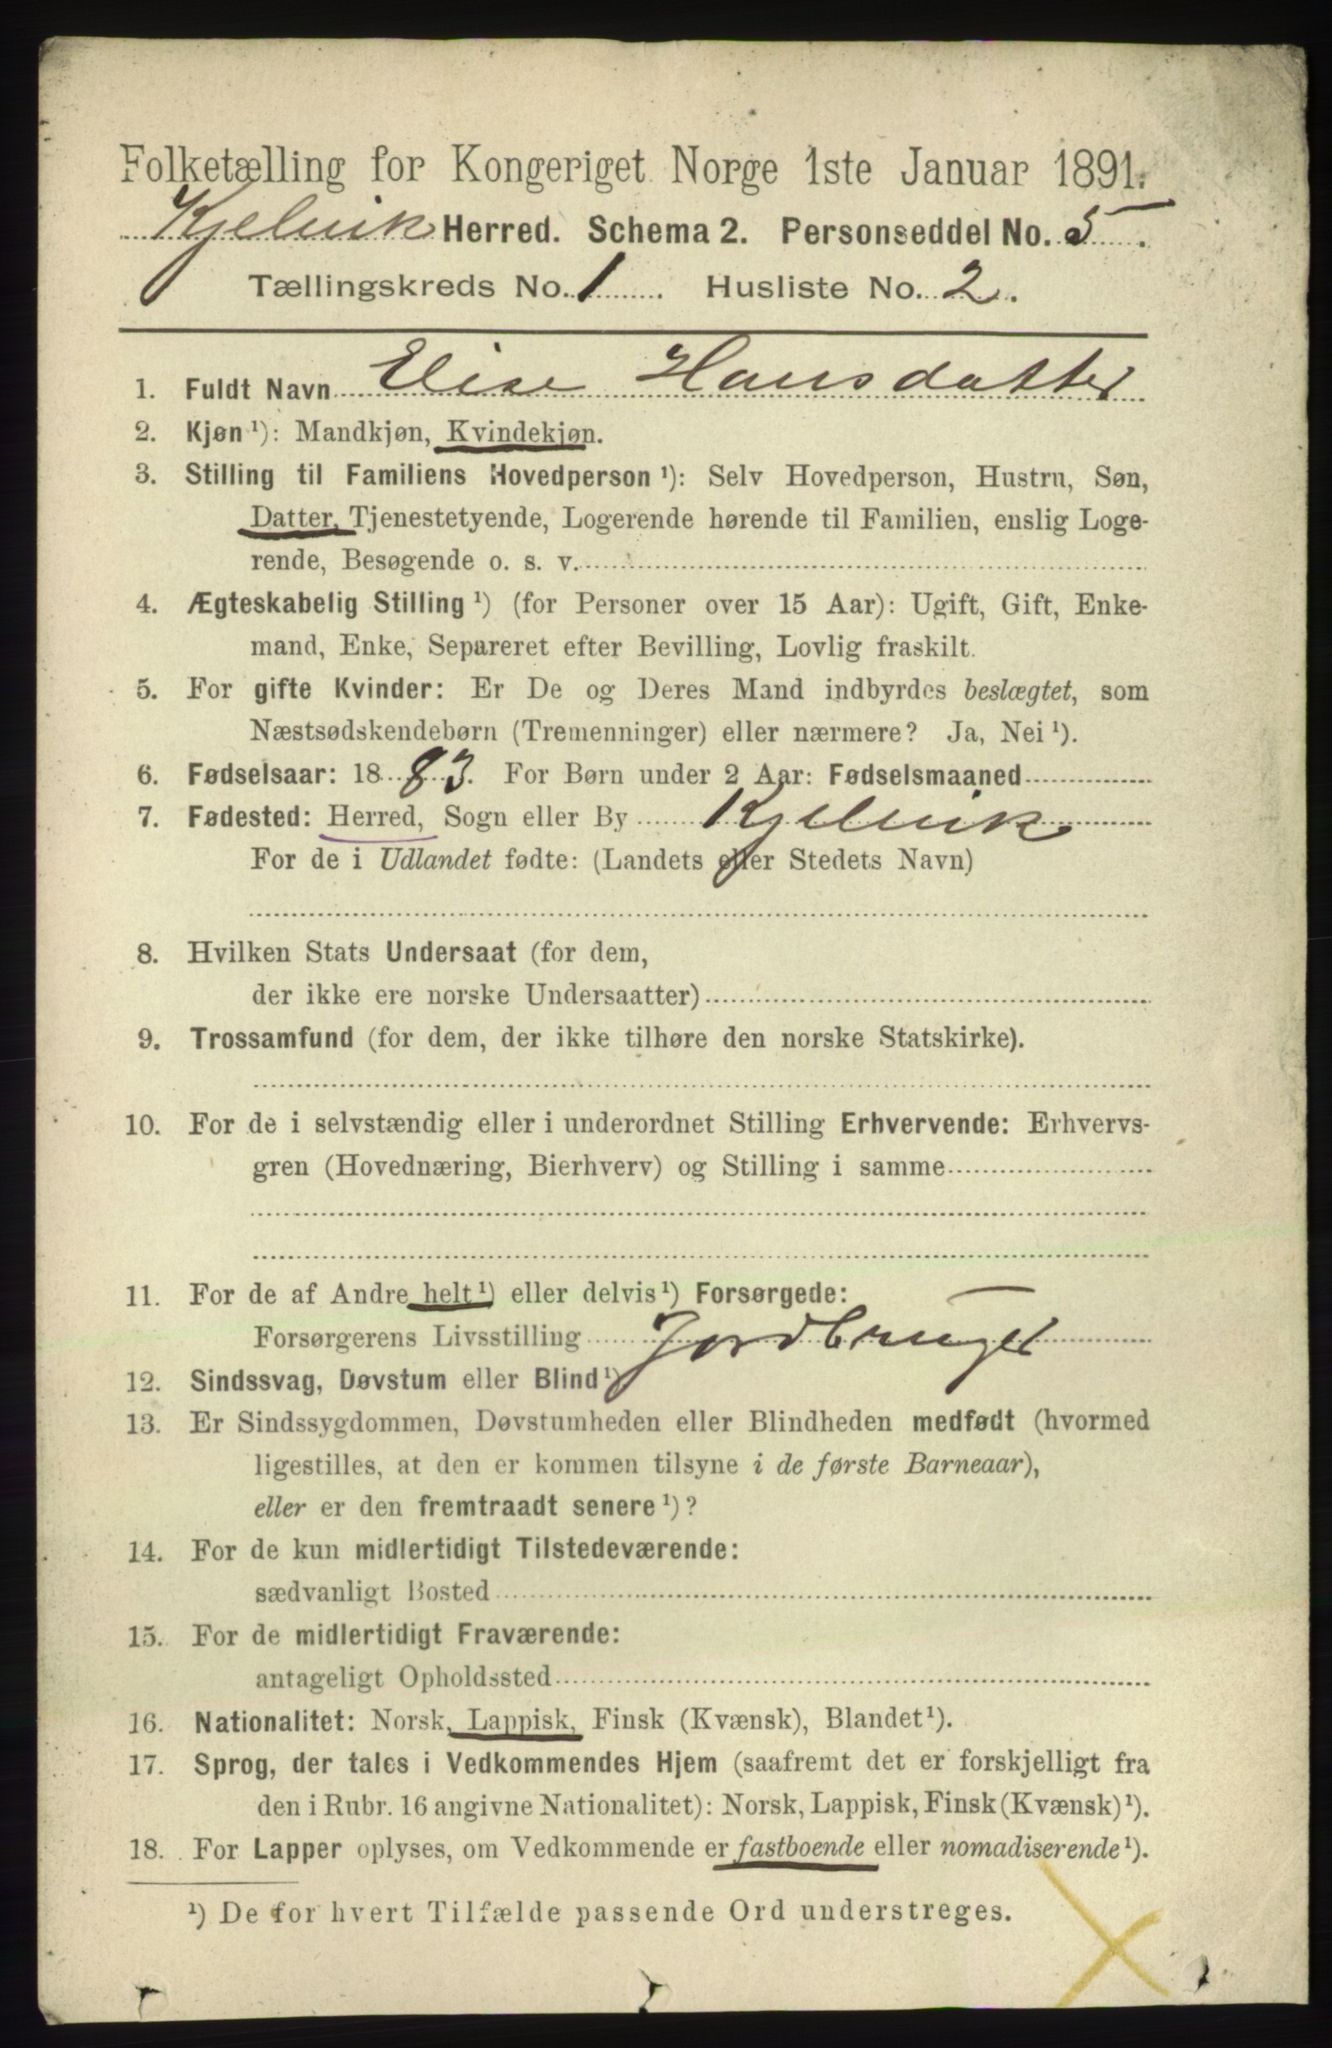 Folketælling for Kongeriget Norge 1ste Januar 1891.
Kjelvik Herred. Schema 2. Personseddel No. 5.
Tællingskreds No. 1. Husliste No. 2.
1. Fuldt Navn Elise Hansdatter
2. Kjøn ¹): Mandkjøn, Kvindekjøn.
3. Stilling til Familiens Hovedperson ¹): Selv Hovedperson, Hustru, Søn,
Datter, Tjenestetyende, Logerende hørende til Familien, enslig Loge-
rende, Besøgende o. s. v.
4. Ægteskabelig Stilling ¹) (for Personer over 15 Aar): Ugift, Gift, Enke-
mand, Enke, Separeret efter Bevilling, Lovlig fraskilt.
5. For gifte Kvinder: Er De og Deres Mand indbyrdes beslægtet, som
Næstsødskendebørn (Tremenninger) eller nærmere? Ja, Nei ¹).
6. Fødselsaar: 1883. For Børn under 2 Aar: Fødselsmaaned
7. Fødested: Herred, Sogn eller By Kjelvik
For de i Udlandet fødte: (Landets eller Stedets Navn)
8. Hvilken Stats Undersaat (for dem,
der ikke ere norske Undersaatter)
9. Trossamfund (for dem, der ikke tilhøre den norske Statskirke).
10. For de i selvstændig eller i underordnet Stilling Erhvervende: Erhvervs-
gren (Hovednæring, Bierhverv) og Stilling i samme
11. For de af Andre helt ¹) eller delvis ¹) Forsørgede:
Forsørgerens Livsstilling Jordbruger
12. Sindssvag, Døvstum eller Blind ¹)
13. Er Sindssygdommen, Døvstumheden eller Blindheden medfødt (hvormed
ligestilles, at den er kommen tilsyne i de første Barneaar),
eller er den fremtraadt senere ¹)?
14. For de kun midlertidigt Tilstedeværende:
sædvanligt Bosted
15. For de midlertidigt Fraværende:
antageligt Opholdssted
16. Nationalitet: Norsk, Lappisk, Finsk (Kvænsk), Blandet ¹).
17. Sprog, der tales i Vedkommendes Hjem (saafremt det er forskjelligt fra
den i Rubr. 16 angivne Nationalitet): Norsk, Lappisk, Finsk (Kvænsk) ¹).
18. For Lapper oplyses, om Vedkommende er fastboende eller nomadiserende ¹).
¹) De for hvert Tilfælde passende Ord understreges.